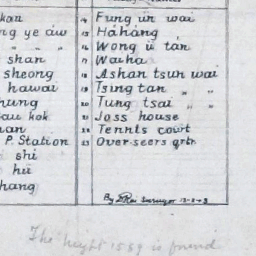 kau 14 Fung un wai
ng ye aw 15 Hahang
" " " 16 Wong u tan
shan 17 Waiha
sheong 18 Ashan tsun wai
hawai 19 Tsing tan " "
hung 20 Tung tsai " "
au kok 21 Joss house
uan 22 Tennis court
P. Station 23 Over-seers qrtr
shi
hu
hang
By D Rai Surveyor
The height 1559 is found